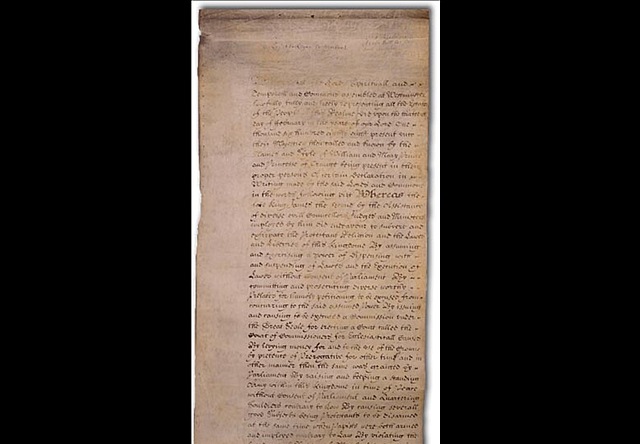 Lords Spirituall and
Temporall and Commons assembled at Westminster
lawfully fully and freely representing all the Estates
of the People of this Realme did upon the thirteenth
day of February in the yeare of our Lord One
thousand six hundred eighty eight present unto
their Majesties then called and known by the
Names and Stile of William and Mary Prince
and Princesse of Orange being present in their
proper persons A certain Declaration in
Writing made by the said Lords and Commons
in the words following viz Whereas the
late King James the Second by the Assistance
of diverse evill Councellors Judges and Ministers
imployed by him did endeavor to subvert and
extirpate the Protestant Religion and the Lawes
and Liberties of this Kingdome By assuming
and exercising a power of dispensing with
and suspending of Lawes and the Execution of
Lawes without Consent of Parliament By
committing and prosecuting diverse worthy
Prelates for humbly petitioning to be excused from
concurring to the said assumed Power By issuing
and causing to be executed a Commission under
the Great Seale for erecting a Court called the
Court of Commissioners for Ecclesiasticall Causes
By levying money for and to the use of the Crowne
by pretence of Prerogative for other time and in
other manner then the same was granted by
Parliament By raising and keeping a standing
Army within this Kingdome in time of Peace
without Consent of Parliament and Quartering
Souldiers contrary to Law By causing severall
good Subjects being Protestants to be disarmed
at the same time when Papists were both armed
and imployed contrary to Law By violating the